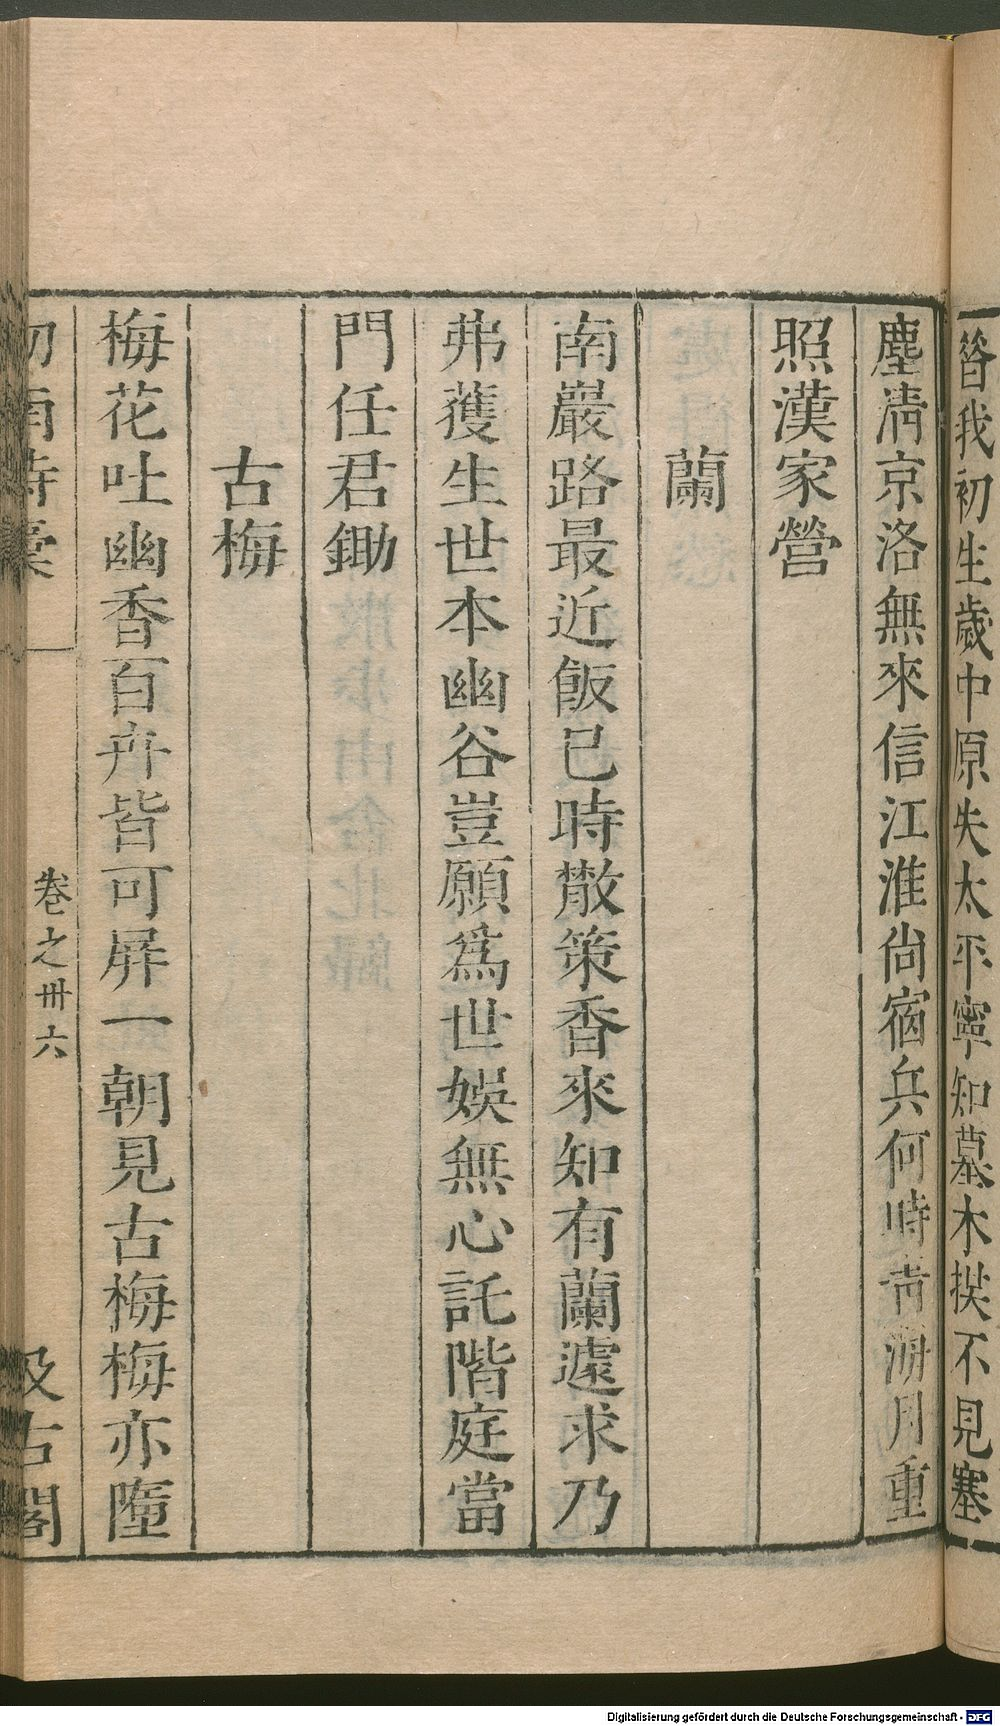 昝我初生歲中原失太平寧知墓木拱不見塞
塵淸京洛無來信江淮尙宿兵何時靑海月重
照漢家營
蘭
南巖路最近飯已時散策香來知有蘭遽求乃
弗獲生世本幽谷豈願爲世娛無心託階庭當
門任君鋤
古梅
梅花吐幽香百卉皆可屛一朝見古梅梅亦墮
卷之卅六
及古閣
Digitalisierung gefördert durch die Deutsche Forschungsgemeinschaft - DFG